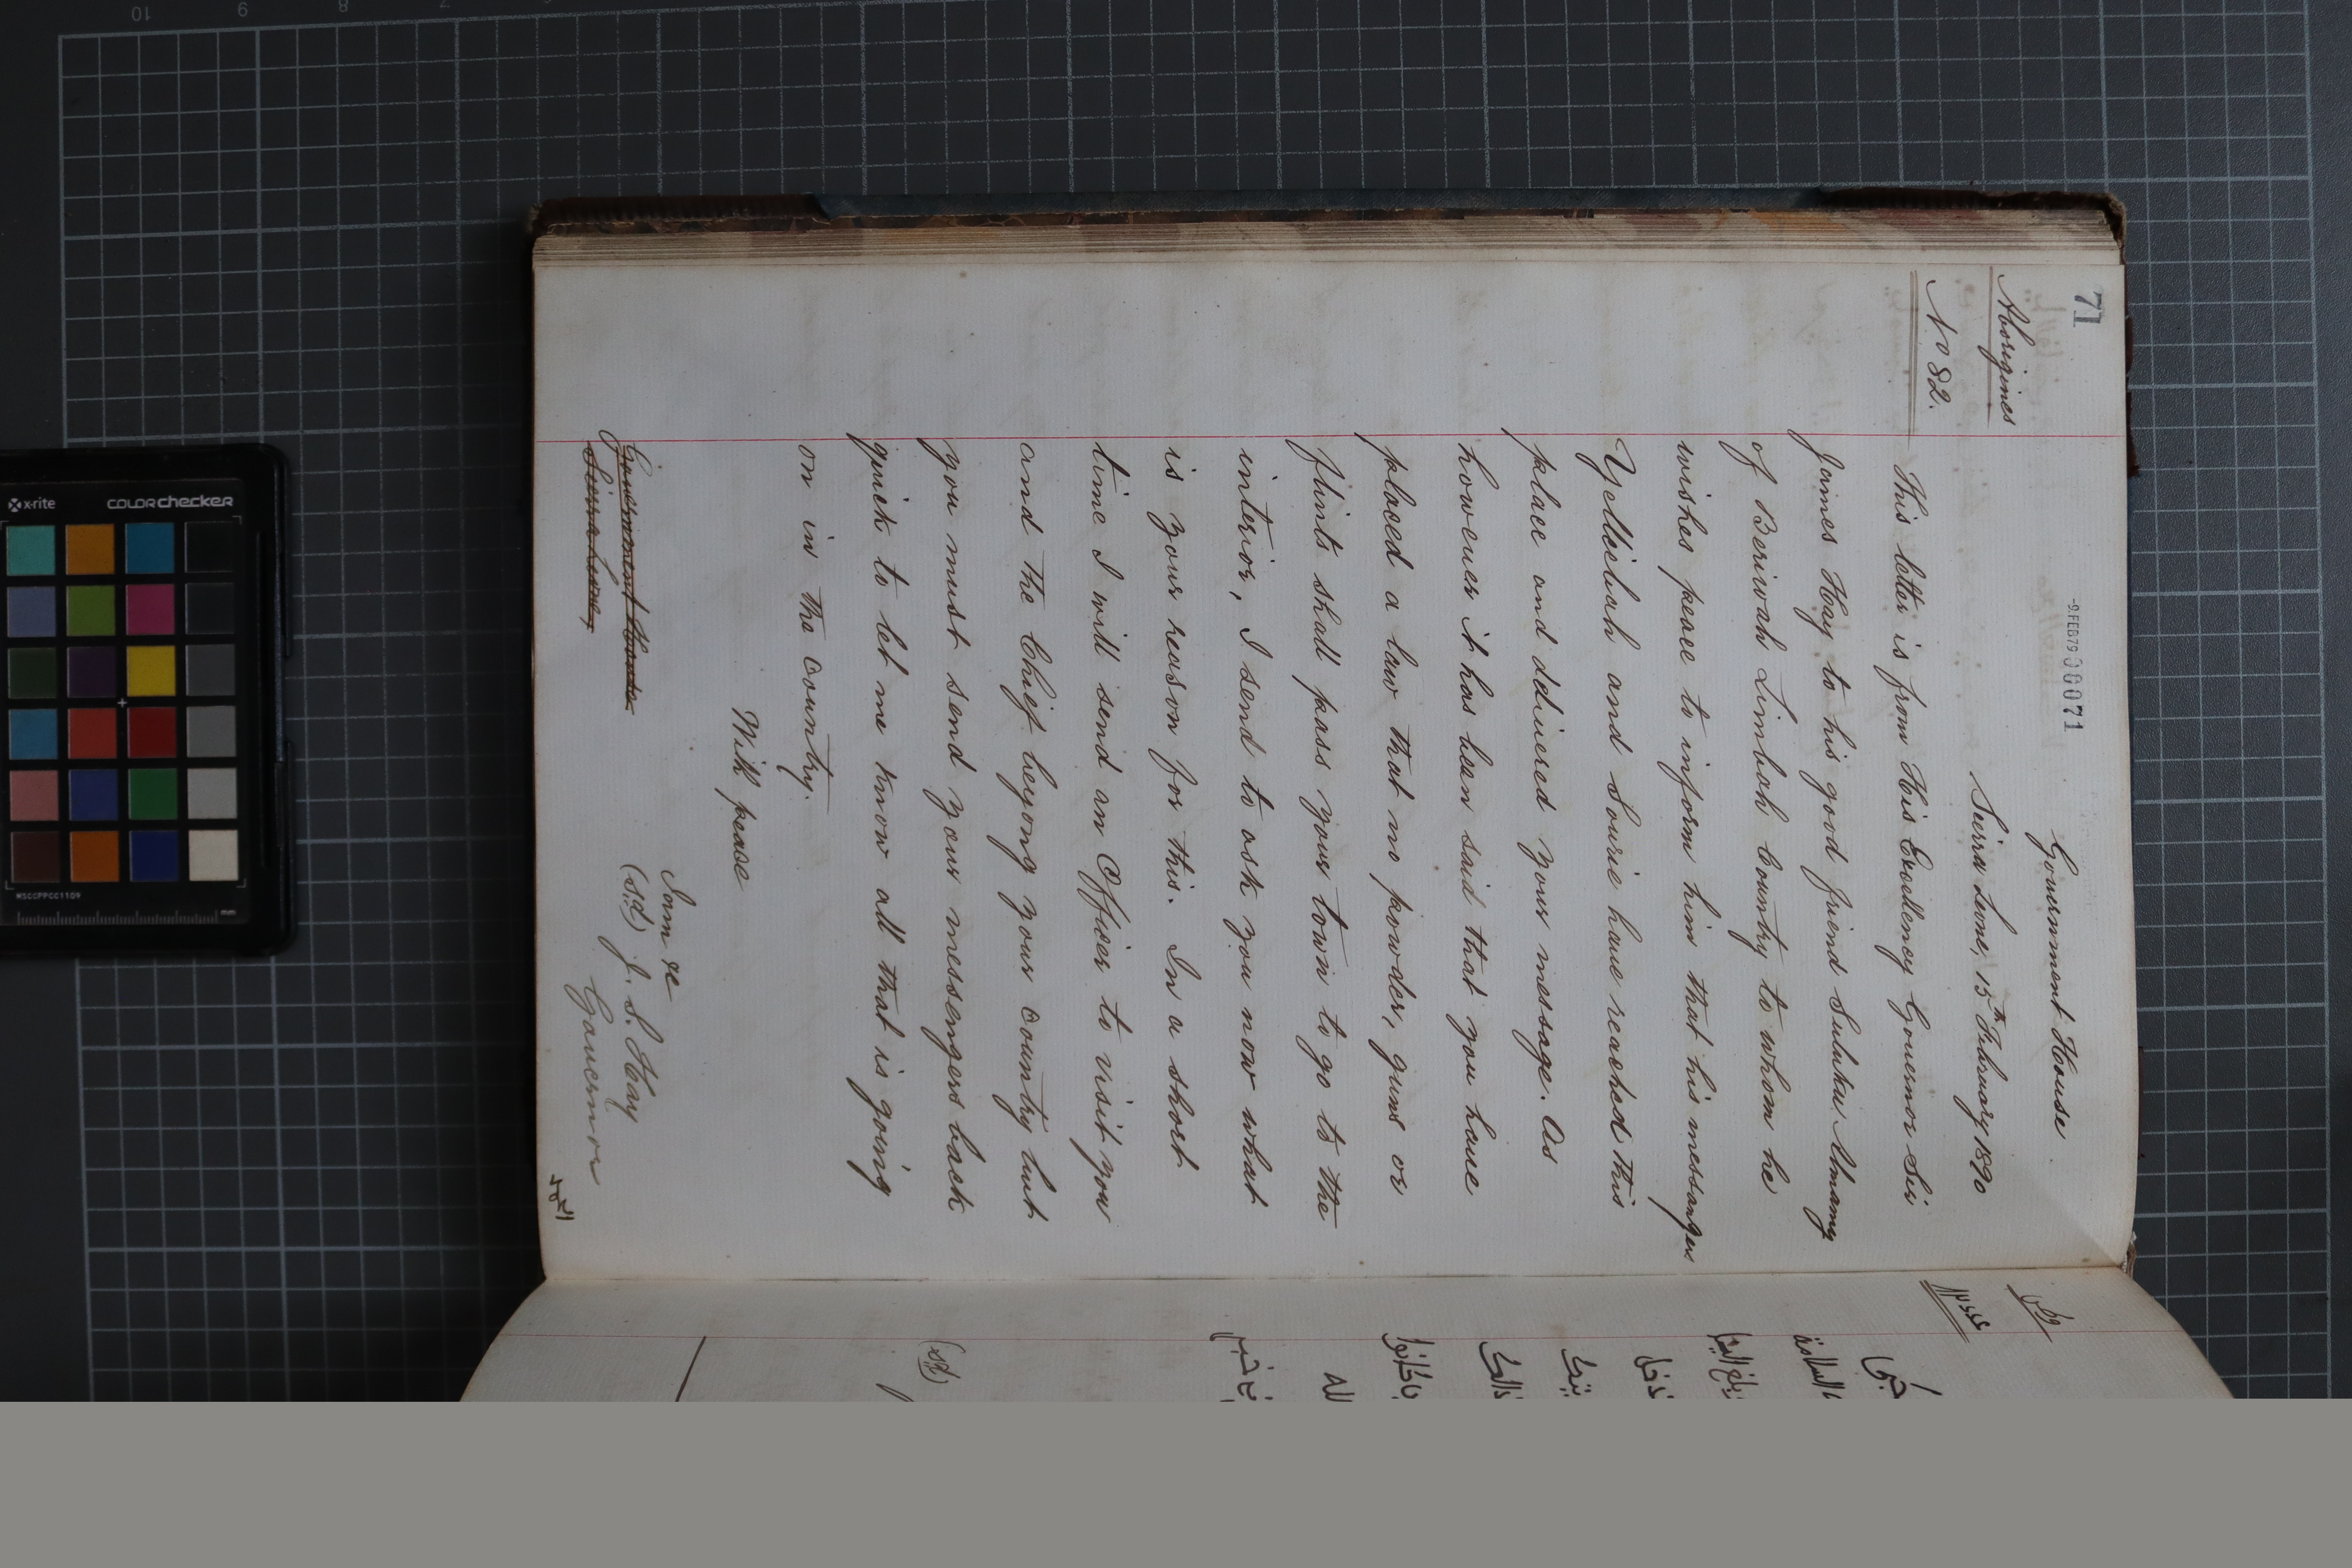 71
-9.FEB79 000071
Government House
Seirra Leone, 15th February 1890
Aborigines
No 82.
This letter is from His Excellency Governor Sir
James Hay to his good friend Suluku Almamy
of Beriwah Limbah Country to whom he
wishes peace to inform him that his messengers
Yelleibah and Sourie have reached this
place and delivered your message. As
however it has been said that you have
placed a law that no powder, guns or
flints shall pass your town to go to the
interior, I send to ask you now what
is your reason for this. In a short
time I will send an Officer to visit you
and the Chief beyong your country but
you must send your messengers back
quick to let me know all that is going
on in the country.
With peace
I am &c
(Sd) J. S. Hay
Governor
Government House
Sierra Leone,
(Sd)
x-rite
COLORchecker
MSCCPPCC1109
mm
10
9
8
7